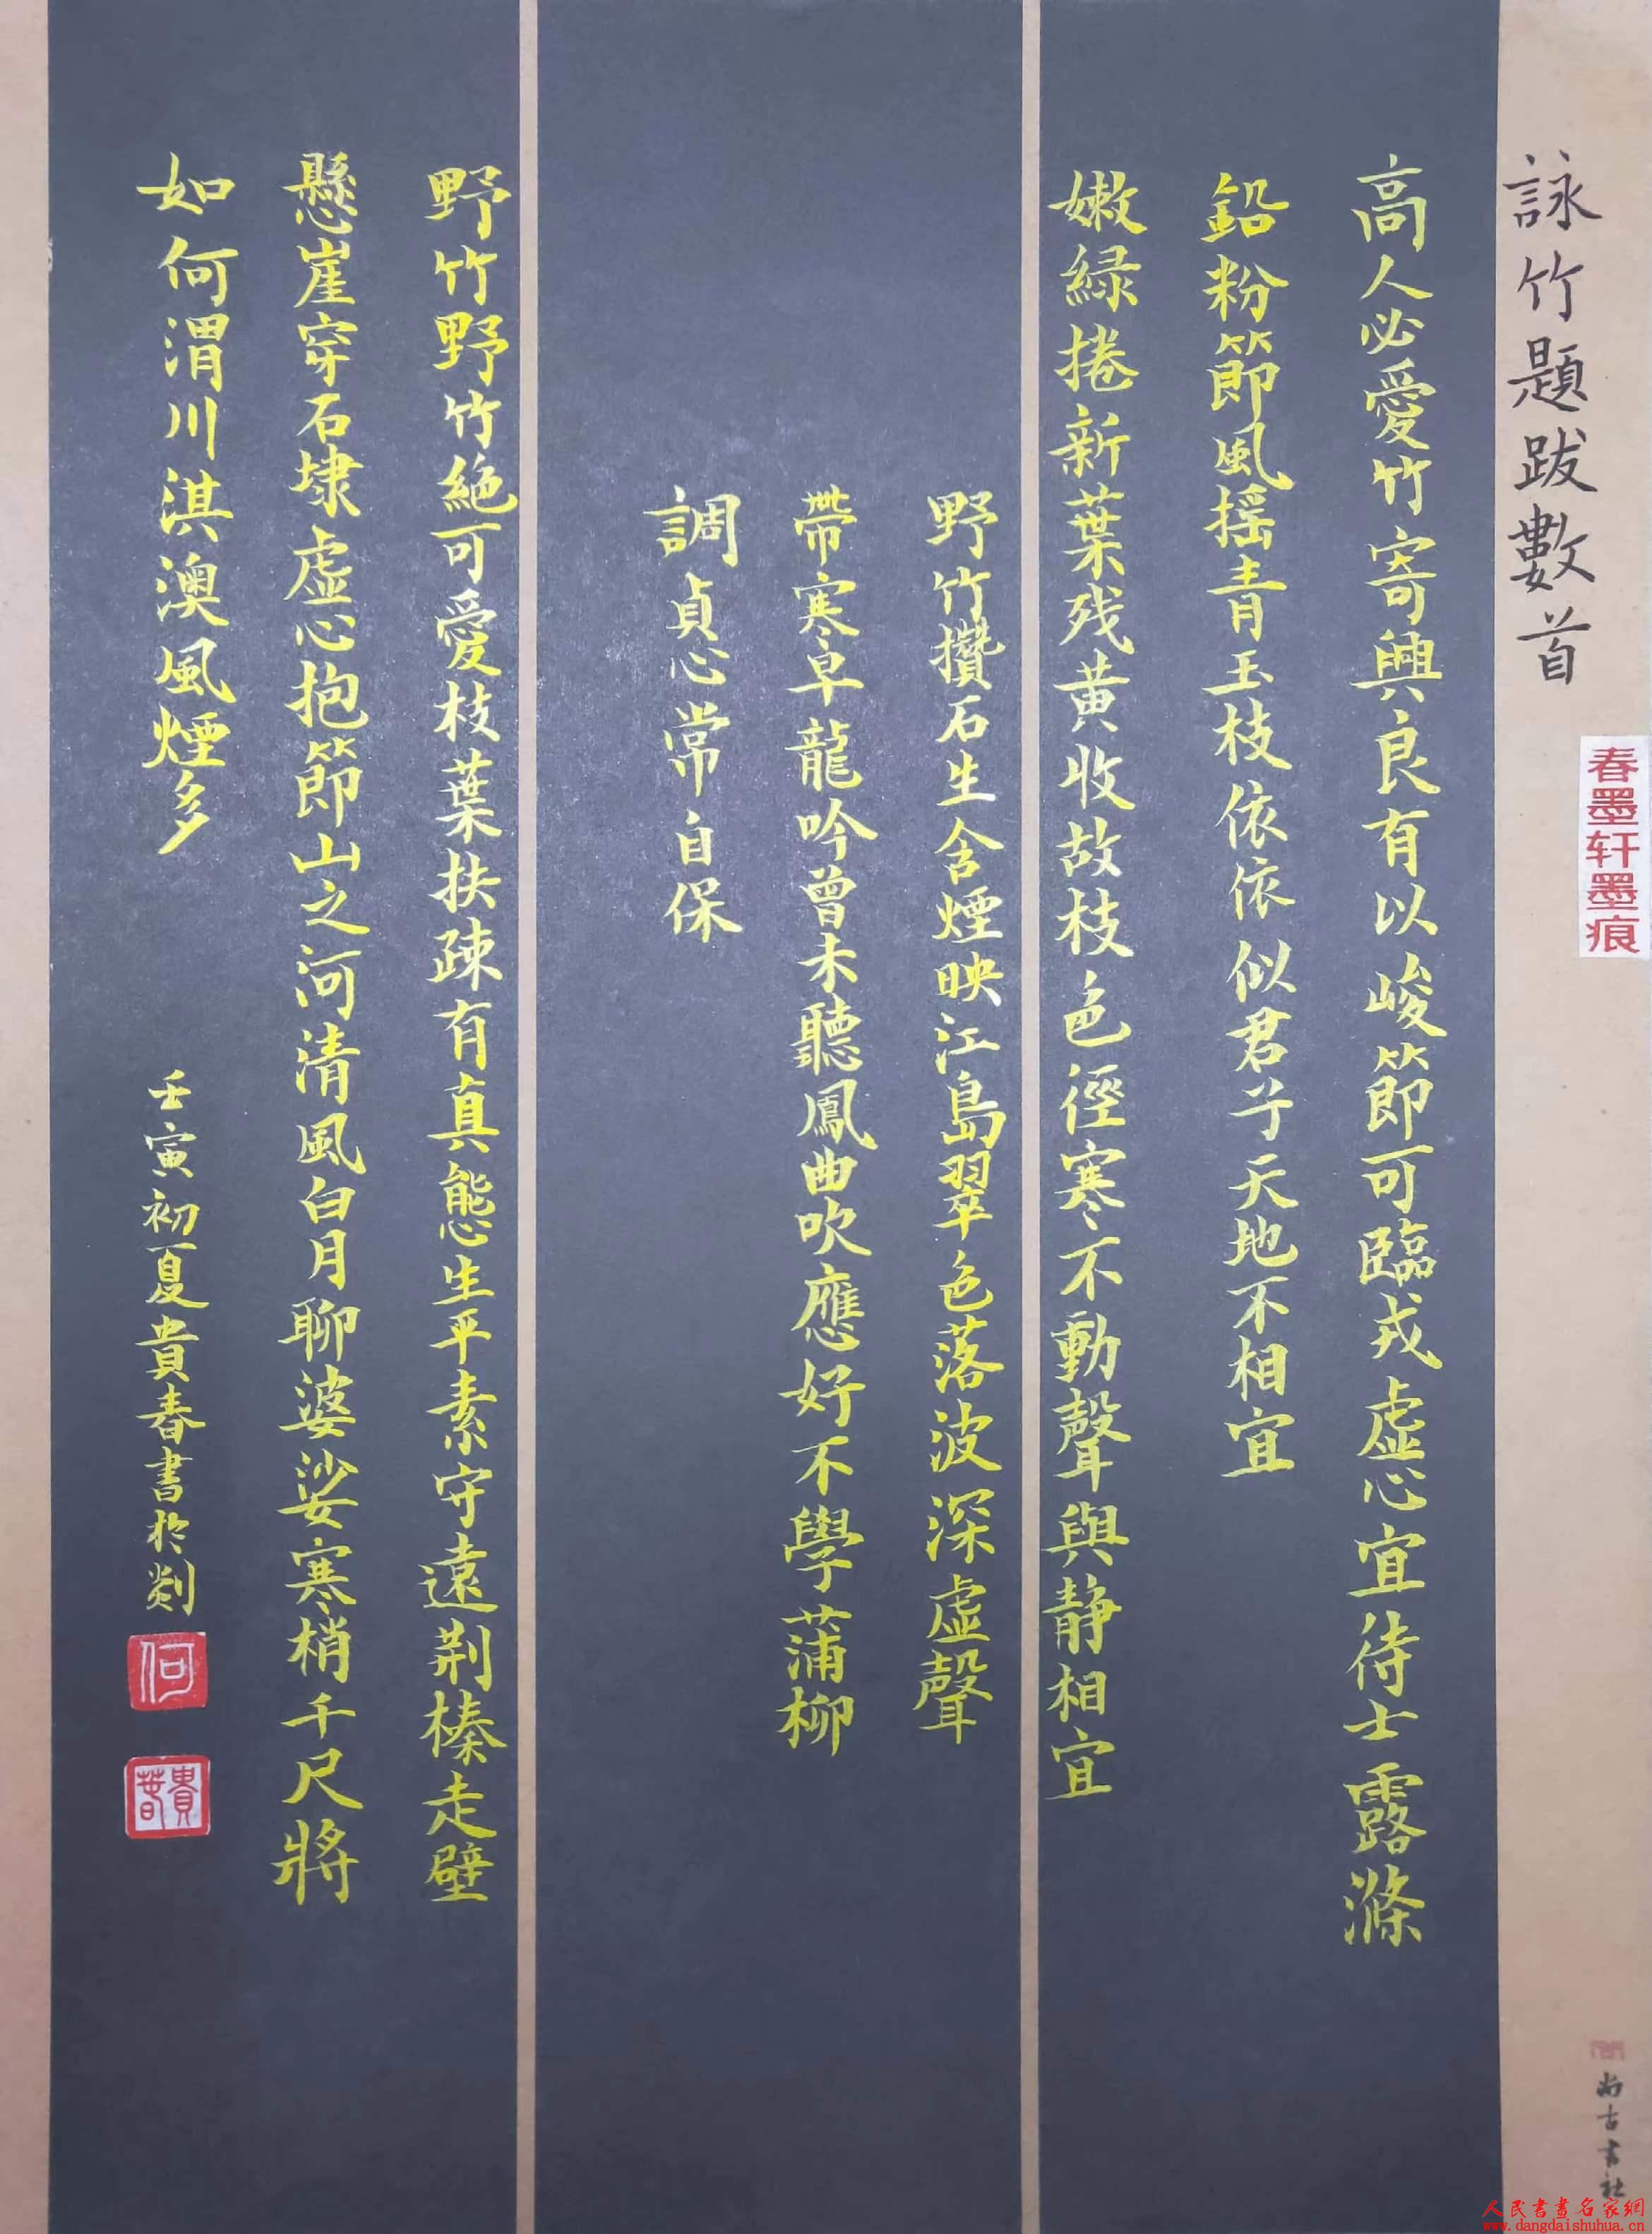 詠竹題跋數首
春墨轩墨痕
高人必愛竹寄興良有以峻節可臨戎虛心宜待士露滌
鉛粉節風搖青玉枝依依似君子天地不相宜
嫩綠捲新葉残黄收故枝色徑寒不動聲與静相宜
野竹攢石生含煙映江島翠色落波深虛聲
帶寒早龍吟曾未聽鳳曲吹應好不學蒲柳
調貞心常自保
野竹野竹絶可愛枝葉扶疎有真態生平素守遠荆榛走壁
懸崖穿石埭虛心抱節山之河清風白月聊婆娑寒梢千尺將
如何渭川淇澳風煙多
壬寅初夏貴春書於剡
何
貴春
尚古書社
人民書畫名家網
www.dangdaishuhua.cn